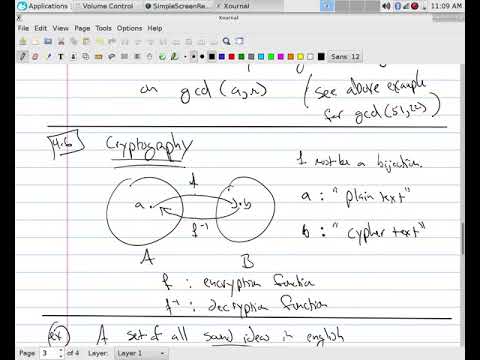 Applications
Volume Control
SimpleScreenRe...
Xournal
11:09 AM
Xournal
File Edit View Journal Tools Options Help
Sans 12
on gcd(a,n)
(see above example
for gcd(51,22))
4.6
Cryptography
f must be a bijection.
f
a
b
a : "plain text"
f⁻¹
b : "cypher text"
A
B
f : encryption function
f⁻¹ : decryption function
ex) A set of all sound ideas in english
Page 3 of 4 Layer: Layer 1